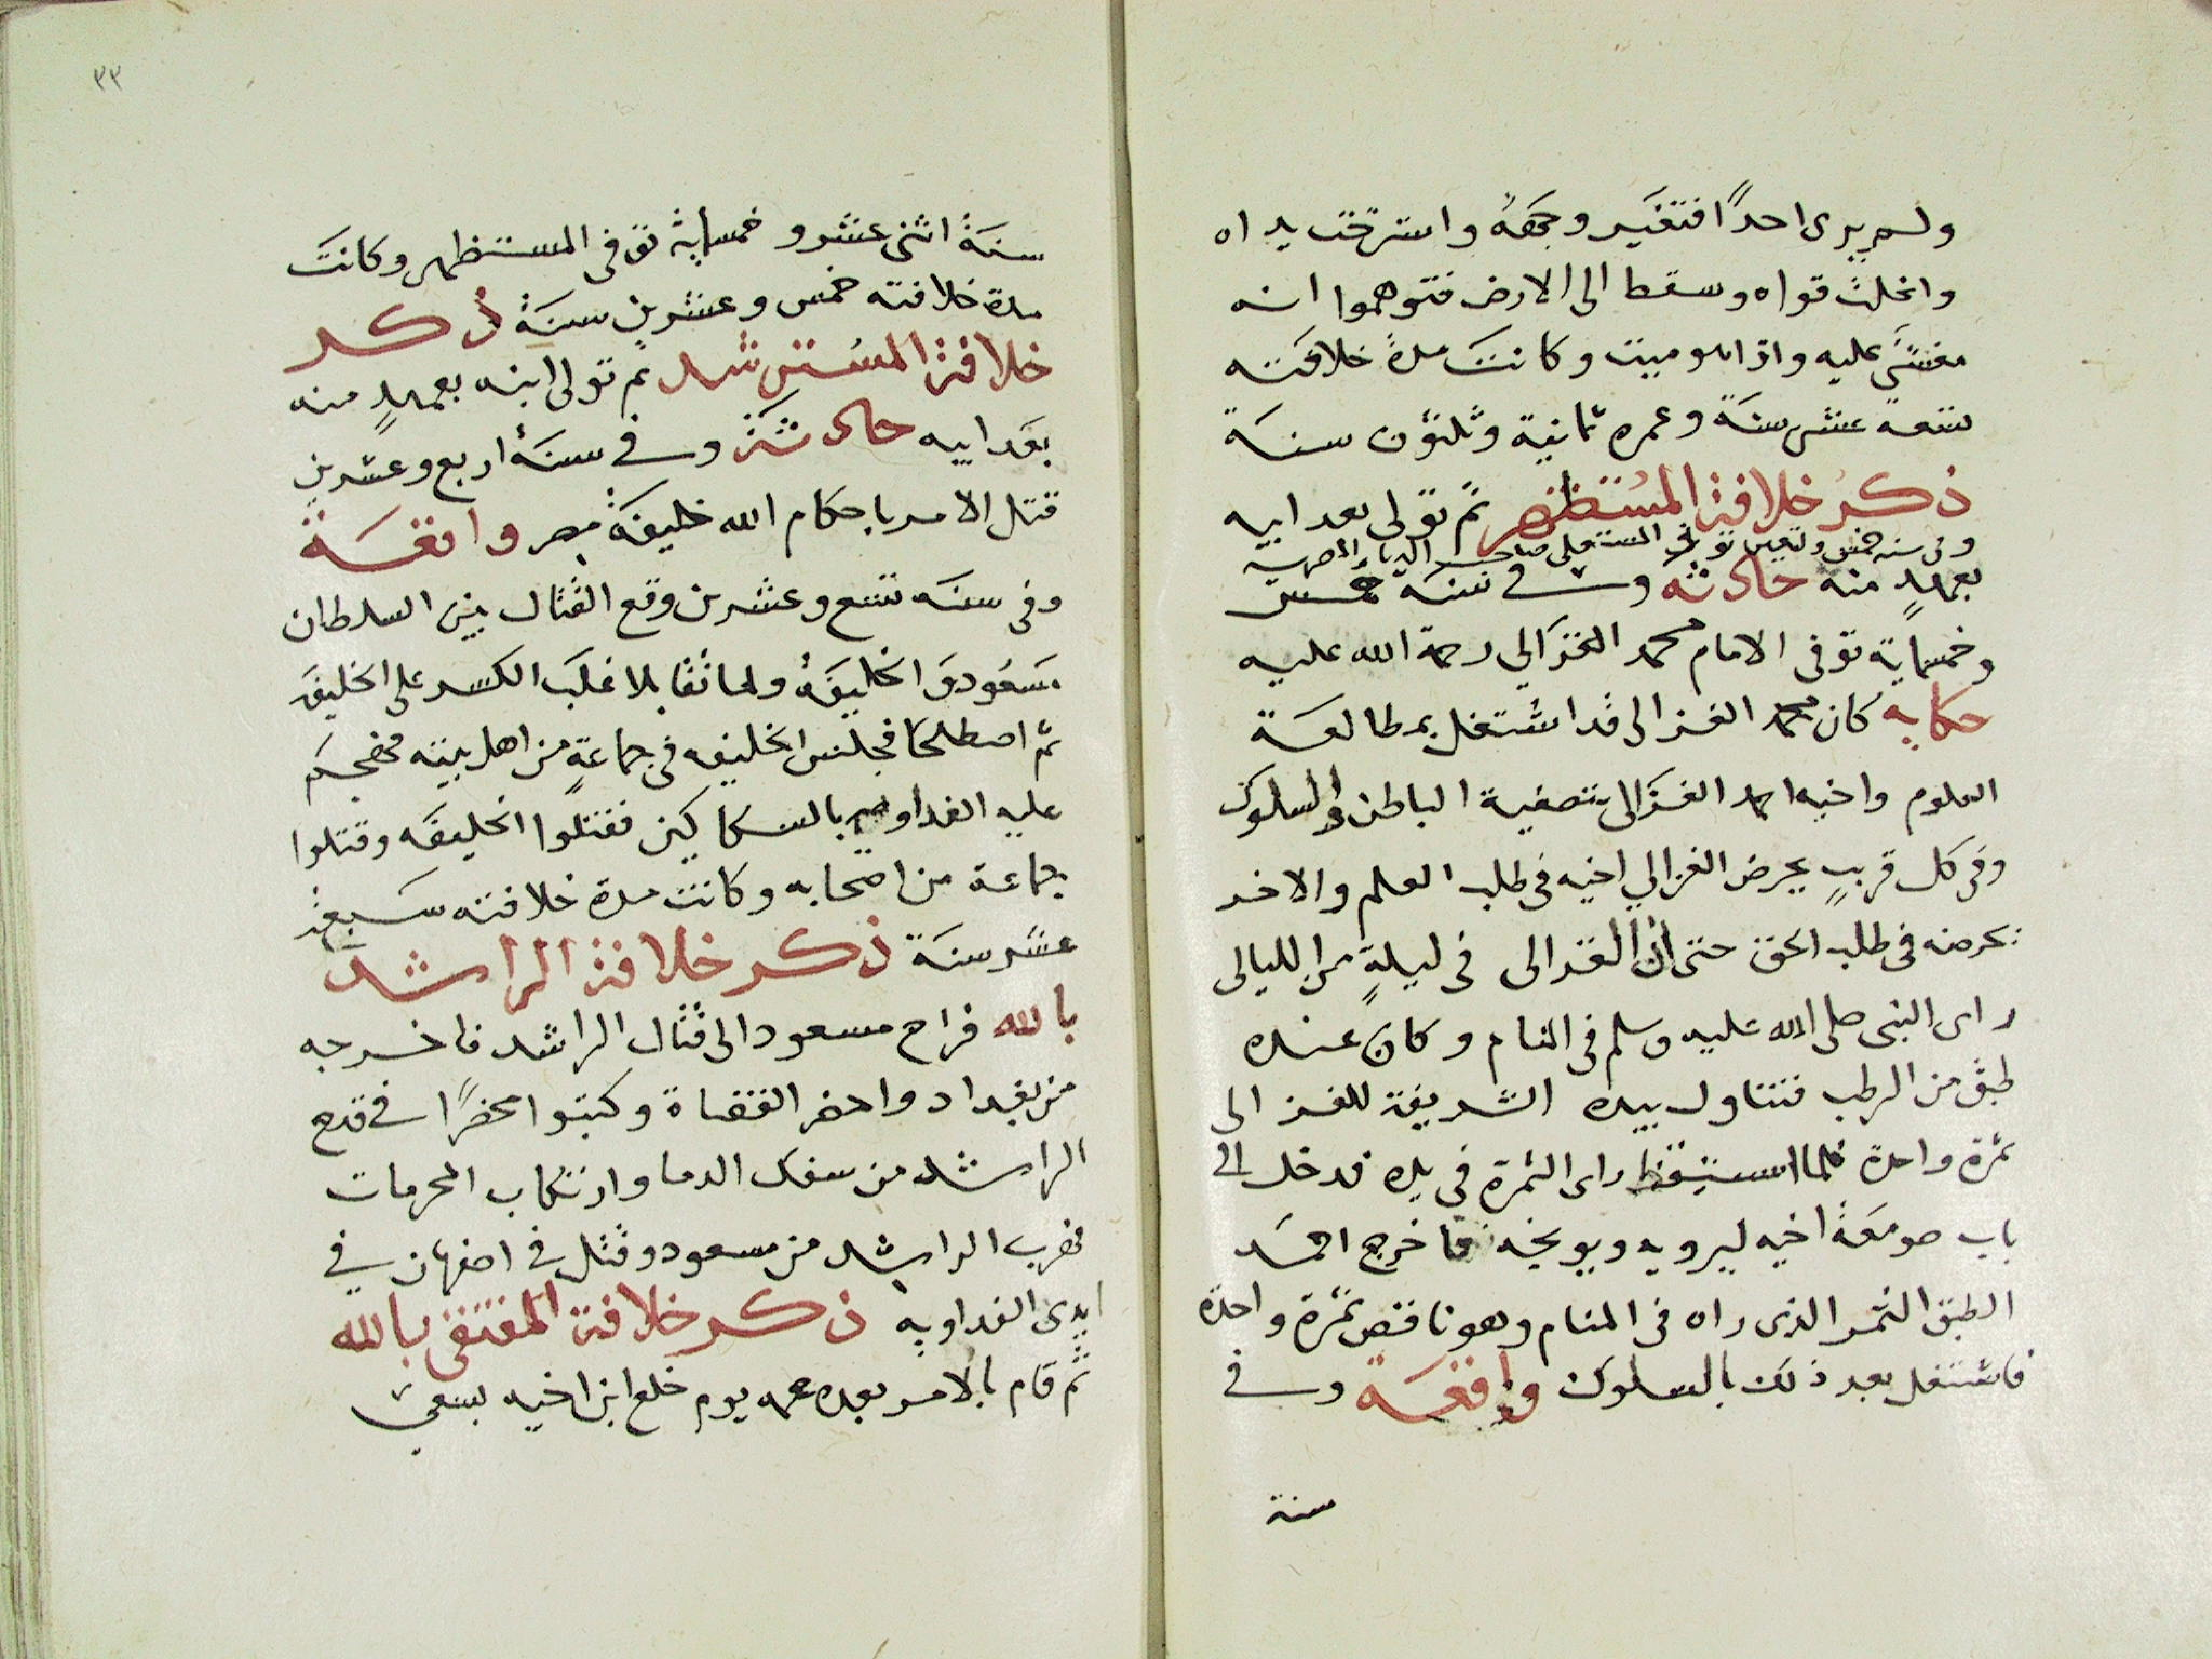 ولم يرى احدًا فتغير وجهه واسترخت يداه
وانحلت قواه وسقط الى الارض فتوهموا انه
مغشي عليه واذا هو ميت وكانت مدة خلافته
تسعة عشر سنة وعمره ثمانية وثلثون سنة
ذكر خلافة المستظهر ثم تولى بعد ابيه
وفى سنه خمس وتسعين توفى المستعلى صاحب الديار المصريه
بعهدٍ منه حادثه وفي سنة خمس
وخمسماية توفى الامام محمد الغزالي رحمة الله عليه
حكايه كان محمد الغزالى قد اشتغل بمطالعة
العلوم واخيه احمد الغزالى بتصفية الباطن والسلوك
وفى كل قريبٍ يحرض الغزالي اخيه فى طلب العلم والاخر
يحرضه فى طلب الحق حتى ان الغزالى فى ليلةٍ من الليالى
راى النبى صلى الله عليه وسلم فى المنام وكان عنده
طبق من الرطب فتناول بيده الشريفة للغزالى
تمرة واحدة فلما استيقظ راى التمرة فى يده فدخل الى
باب صومعة اخيه ليرويه ويوبخه فاخرج احمد
الطبق التمر الذى راه فى المنام وهو ناقص تمرة واحدة
فاشتغل بعد ذلك بالسلوك واقعة وفي
سنة
٣٣
سنة اثنى عشر وخمسماية توفى المستظهر وكانت
مدة خلافته خمس وعشرين سنة ذكر
خلافة المسترشد ثم تولى ابنه بعهدٍ منه
بعد ابيه حادثة وفي سنة اربع وعشرين
قتل الامر باحكام الله خليفة مصر واقعة
وفى سنه تسع وعشرين وقع القتال بين السلطان
مسعود والخليفة ولما تقابلا غلب الكسر على الخليفة
ثم اصطلحا فجلس الخليفه فى جماعةٍ من اهل بيته فهجم
عليه الفداويه بالسكاكين فقتلوا الخليفه وقتلوا
جماعة من اصحابه وكانت مدة خلافته سبعة
عشر سنة ذكر خلافة الراشد
بالله فراح مسعود الى قتال الراشد فاخرجه
من بغداد واحضر القضاة وكتبوا محضرًا في قدح
الراشد من سفك الدما وارتكاب المحرمات
فهرب الراشد من مسعود وقتل في اصفهان في
ايدى الفداويه ذكر خلافة المقتفى بالله
ثم قام بالامر بعده عمه يوم خلع ابن اخيه بسعي